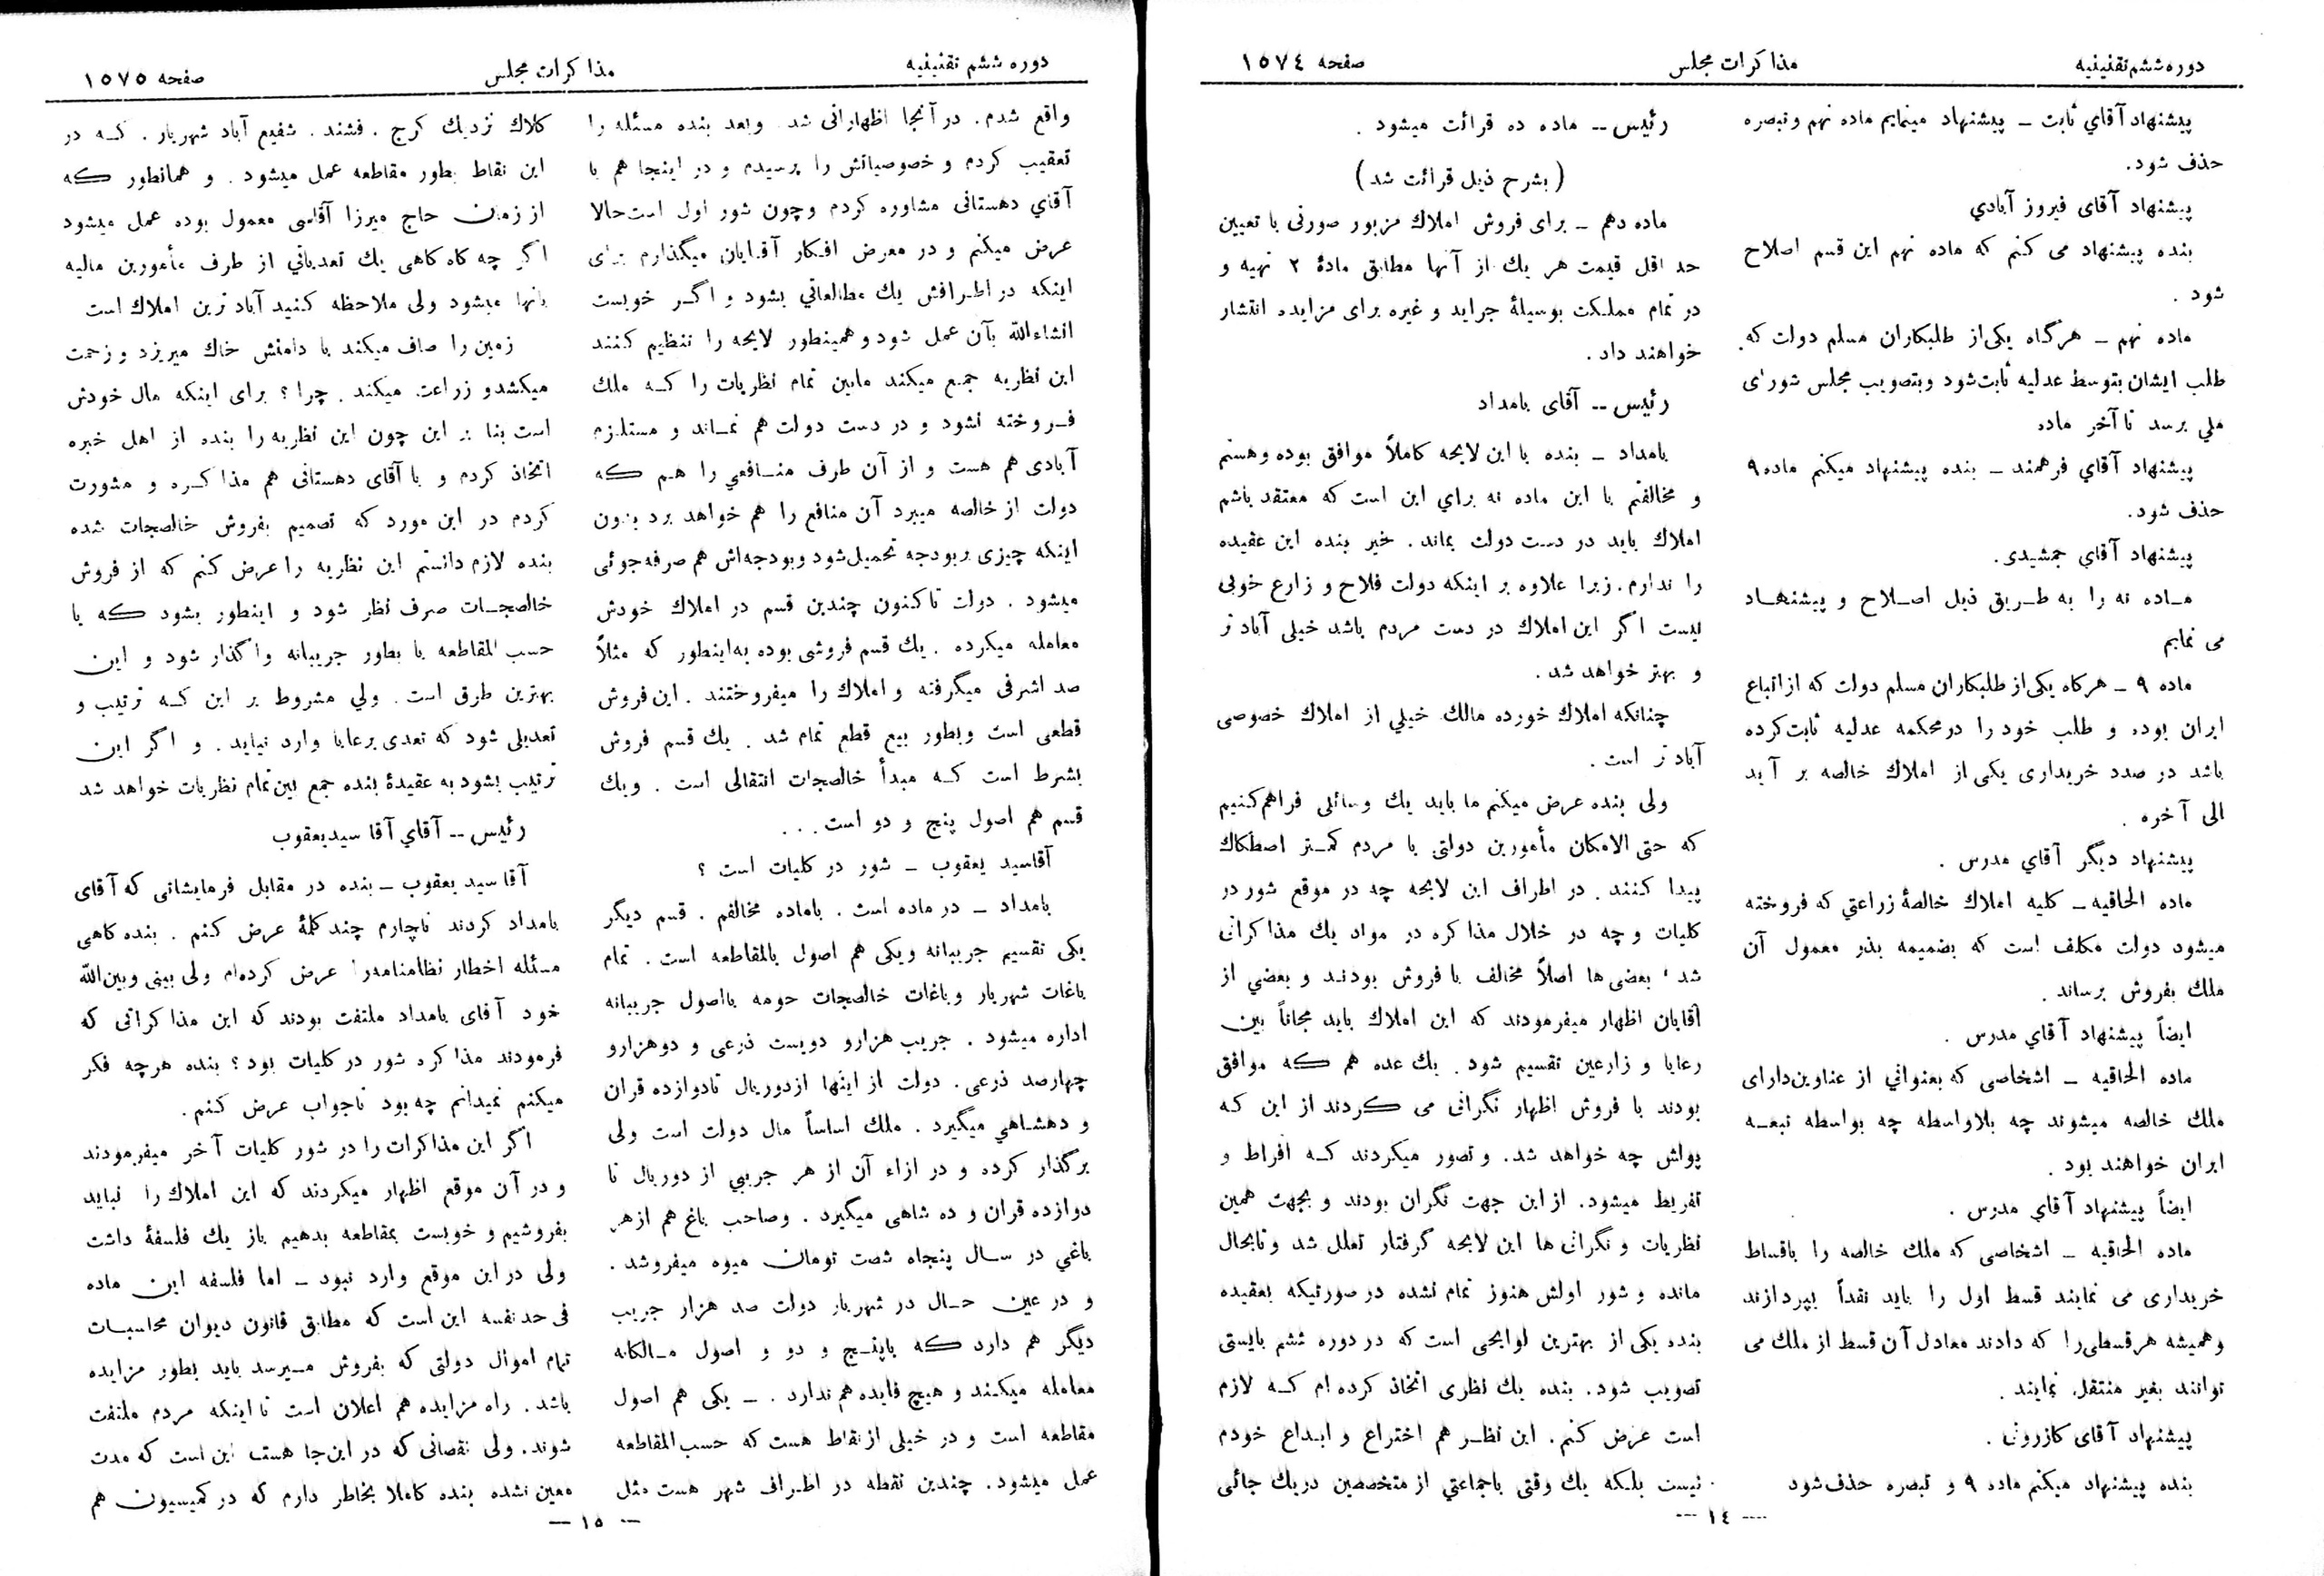 دوره ششم تقنینیه
مذاکرات مجلس
صفحه ۱۵۷٤
پیشنهاد آقاي ثابت ــ پیشنهاد مینمایم ماده نهم و تبصره
حذف شود.
پیشنهاد آقای فیروز آبادي
بنده پیشنهاد می کنم که ماده نهم این قسم اصلاح
شود .
ماده نهم ــ هرگاه یکی از طلبکاران مسلم دولت که
طلب ایشان بتوسط عدلیه ثابت شود و بتصویب مجلس شورای
ملي برسد تا آخر ماده
پیشنهاد آقاي فرهمند ــ بنده پیشنهاد میکنم ماده ۹
حذف شود.
پیشنهاد آقاي جمشیدی.
مـاده نه را به طـریق ذیل اصـلاح و پیشنهـاد
می نمایم
ماده ۹ ــ هرکاه یکی از طلبکاران مسلم دولت که از اتباع
ایران بوده و طلب خود را در محکمه عدلیه ثابت کرده
باشد در صدد خریداری یکی از املاك خالصه بر آید
الی آخره .
پیشنهاد دیگر آقاي مدرس .
ماده الحاقیه ــ کلیه املاك خالصهٔ زراعتي که فروخته
میشود دولت مکلف است که بضمیمه بذر معمول آن
ملك بفروش برساند .
ایضاً پیشنهاد آقاي مدرس .
ماده الحاقیه ــ اشخاصی که بعنواني از عناوین دارای
ملك خالصه میشوند چه بلاواسطه چه بواسطه تبعـه
ایران خواهند بود .
ایضاً پیشنهاد آقاي مدرس .
ماده الحاقیه ــ اشخاصی که ملك خالصه را باقساط
خریداری می نمایند قسط اول را باید نقداً بپردازند
و همیشه هر قسطی را که دادند معادل آن قسط از ملك می
توانند بغیر منتقل نمایند .
پیشنهاد آقای کازرونی .
بنده پیشنهاد میکنم ماده ۹ و تبصره حذف شود
رئیس -- ماده ده قرائت میشود .
(بشرح ذیل قرائت شد)
ماده دهم ــ برای فروش املاك مزبور صورتی با تعیین
حد اقل قیمت هر یك از آنها مطابق مادهٔ ۲ تهیه و
در تمام مملکت بوسیلهٔ جراید و غیره برای مزایده انتشار
خواهند داد .
رئیس -- آقای بامداد
بامداد ــ بنده با این لایحه کاملاً موافق بوده و هستم
و مخالفتم با این ماده نه براي این است که معتقد باشم
املاك باید در دست دولت بماند . خیر بنده این عقیده
را ندارم . زیرا علاوه بر اینکه دولت فلاح و زارع خوبی
نیست اگر این املاك در دست مردم باشد خیلی آباد تر
و بهتر خواهد شد .
چنانکه املاك خورده مالك خیلي از املاك خصوصی
آباد تر است .
ولی بنده عرض میکنم ما باید یك وسائلی فراهم کنیم
که حتی الامکان مأمورین دولتی با مردم کمـتر اصطکاك
پیدا کنند . در اطراف این لایحه چه در موقع شور در
کلیات و چه در خلال مذاکره در مواد یك مذاکراتی
شد ، بعضی ها اصلاً مخالف با فروش بودنـد و بعضي از
آقایان اظهار میفرمودند که این املاك باید مجاناً بین
رعایا و زارعین تقسیم شود . یك عده هم که موافق
بودند با فروش اظهار نگرانی می کردند از این که
پولش چه خواهد شد . و تصور میکردند کـه افراط و
تفریط میشود . از این جهت نگران بودند و بجهت همین
نظریات و نگرانی ها این لایحه گرفتار تعلل شد و تا بحال
مانده و شور اولش هنوز تمام نشده در صورتیکه بعقیده
بنده یکی از بهترین لوایحی است که در دوره ششم بایستی
تصویب شود . بنده یك نظری اتخاذ کرده ام کـه لازم
است عرض کنم . این نظـر هم اختراع و ابداع خودم
نیست بلـکه یك وقتی با جماعتي از متخصصین در یك جائی
--- ۱٤ ---
دوره ششم تقنینیه
مذاکرات مجلس
صفحه ۱۵۷۵
واقع شدم . در آنجا اظهاراتی شد و بعد بنده مسئله را
تعقیب کردم و خصوصیاتش را پرسیدم و در اینجا هم با
آقاي دهستانی مشاوره کردم و چون شور اول است حالا
عرض میکنم و در معرض افـکار آقـایان میگذارم برای
اینکه در اطـرافش یك مطالعاتي بشود و اگـر خوبست
انشاءالله بآن عمل شود و همینطور لایحه را تنظیم کنند
این نظریه جمـع میکند مابین تمام نظریات را کـه ملك
فـروخته نشود و در دست دولت هم نمـاند و مستلزم
آبادی هم هست و از آن طرف منـافعي را هـم که
دولت از خالصه میبرد آن منافع را هم خواهد برد بدون
اینکه چیزی بر بودجه تحمیل شود و بودجه اش هم صرفه جوئی
میشود . دولت تا کنون چندین قسم در املاك خودش
معامله میکرده . یك قسم فروشی بوده به اینطور که مثلاً
صد اشرفی میگرفته و املاك را میفروختند . این فروش
قطعی است و بطور بیع قطع تمام شد . یك قسم فروش
بشرط است کـه مبدأ خالصجات انتقالی است . و یك
قسم هم اصول پنج و دو است . . .
آقاسید یعقوب ــ شور در کلیات است ؟
بامداد ــ در ماده است . باماده مخالفم . قسم دیگر
یکی تقسیم جریبانه ویکی هم اصول بالمقاطعه است . تمام
باغات شهریار و باغات خالصجات حومه با اصول جریبانه
اداره میشود . جریب هزار و دویست ذرعی و دو هزار و
چهارصد ذرعی . دولت از اینها از دو ریال تا دوازده قران
و دهشـاهي میگیرد . ملك اساساً مال دولت است ولی
برگذار کرده و در ازاء آن از هر جریبي از دو ریال تا
دوازده قران و ده شاهی میگیرد . و صاحب باغ هم از هر
باغي در سـال پنجاه شصت تومان میوه میفروشد .
و در عین حـال در شهریار دولت صد هزار جریب
دیگر هم دارد که باپنـج و دو و اصول مـالکانه
معامله میکند و هیچ فایده هم ندارد . ــ یکی هم اصول
مقاطعه است و در خیلی از نقاط هست که حسب المقاطعه
عمل میشود . چندین نقطه در اطراف شهر هست مثل
کلاك نزدیك کرج . فشند . شفیع آباد شهریار . کـه در
این نقاط بطور مقاطعه عمل میشود . و همانطور که
از زمان حاج میرزا آقاسی معمول بوده عمل میشود
اگر چه کاه کاهی یك تعدیاتي از طرف مأمورین مالیه
بآنها میشود ولی ملاحظه کنید آباد ترین املاك است
زمین را صاف میکند با دامنش خاك میریزد و زحمت
میکشد و زراعت میکند . چرا ؟ برای اینکه مال خودش
است بنا بر این چون این نظریه را بنده از اهل خبره
اتخاذ کردم و با آقای دهستانی هم مذاکـره و مشورت
کردم در این مورد که تصمیم بفروش خالصجات شده
بنده لازم دانستم این نظریه را عرض کنم که از فروش
خالصجـات صرف نظر شود و اینطور بشود که یا
حسب المقاطعه یا بطور جریبانه واگذار شود و این
بهترین طرق است . ولي مشروط بر این کـه ترتیب و
تعدیلی شود که تعدی برعایا وارد نیاید . و اگر این
ترتیب بشود به عقیدهٔ بنده جمع بین تمام نظریات خواهد شد
رئیس -- آقاي آقا سید یعقوب
آقا سید یعقوب ــ بنده در مقابل فرمایشاتی که آقای
بامداد کردند ناچارم چند کلمهٔ عرض کنم . بنده کاهی
مسئله اخطار نظامنامه را عرض کرده ام ولی بینی و بین الله
خود آقای بامداد ملتفت بودند که این مذاکراتی که
فرمودند مذاکره شور در کلیات بود ؟ بنده هر چه فکر
میکنم نمیدانم چه بود تا جواب عرض کنم .
اگر این مذاکرات را در شور کلیات آخر میفرمودند
و در آن موقع اظهار میکردند که این املاك را نباید
بفروشیم و خوبست بمقاطعه بدهیم باز یك فلسفهٔ داشت
ولی در این موقع وارد نبود ــ اما فلسفه این ماده
فی حد نفسه این است که مطابق قانون دیوان محاسبـات
تمام اموال دولتی که بفروش مـیرسد باید بطور مزایده
باشد . راه مزایده هم اعلان است تا اینکه مردم ملتفت
شوند . ولی نقصانی که در این جا هست این است که مدت
معین نشده بنده کاملا بخاطر دارم که در کمیسیون هم
--- ۱۵ ---